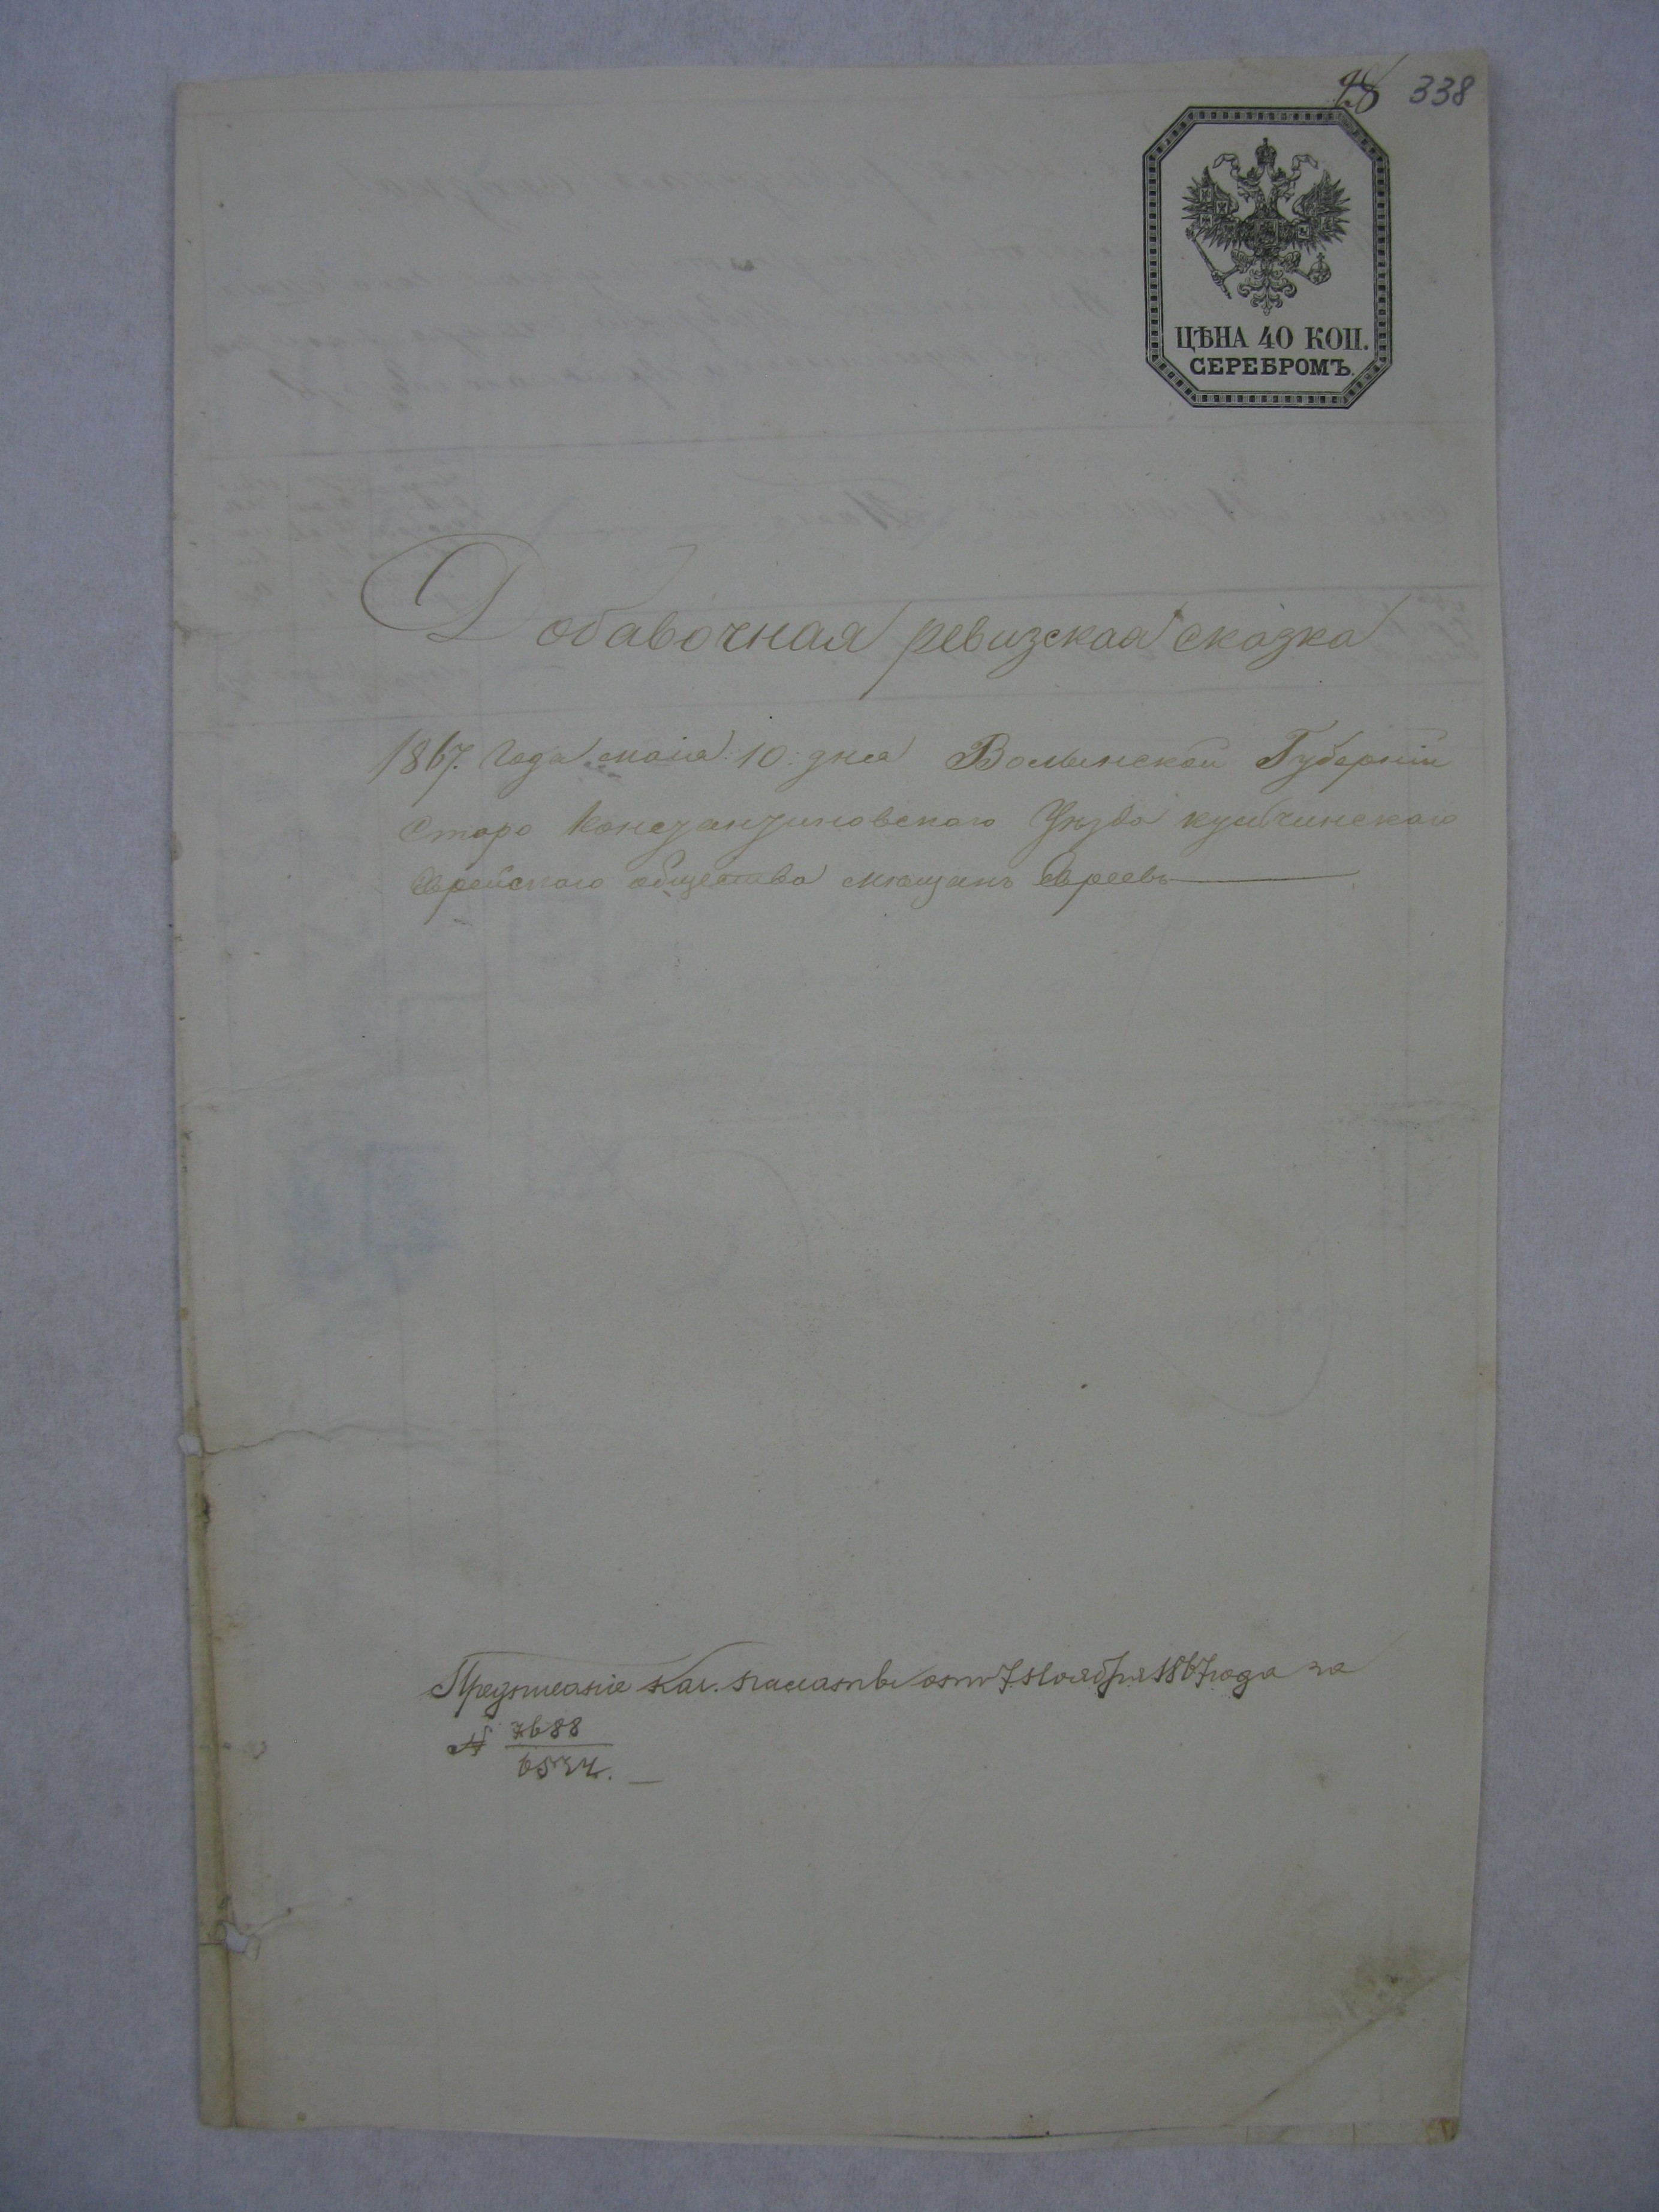 28 338
ЦѢНА 40 КОП.
СЕРЕБРОМЪ.
Добавочная ревизская сказка
1867. Года маіа: 10: дня Волынской Губерніи
Старо Константиновского Уѣзда кульчинского
Еврейского общества мѣщанъ Евреевъ
Предписаніе Каз. палаты отъ 7 Ноября 1867 года за
№ 7688